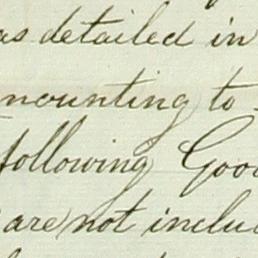 as detailed in
mounting to
following Goo
are not inclu